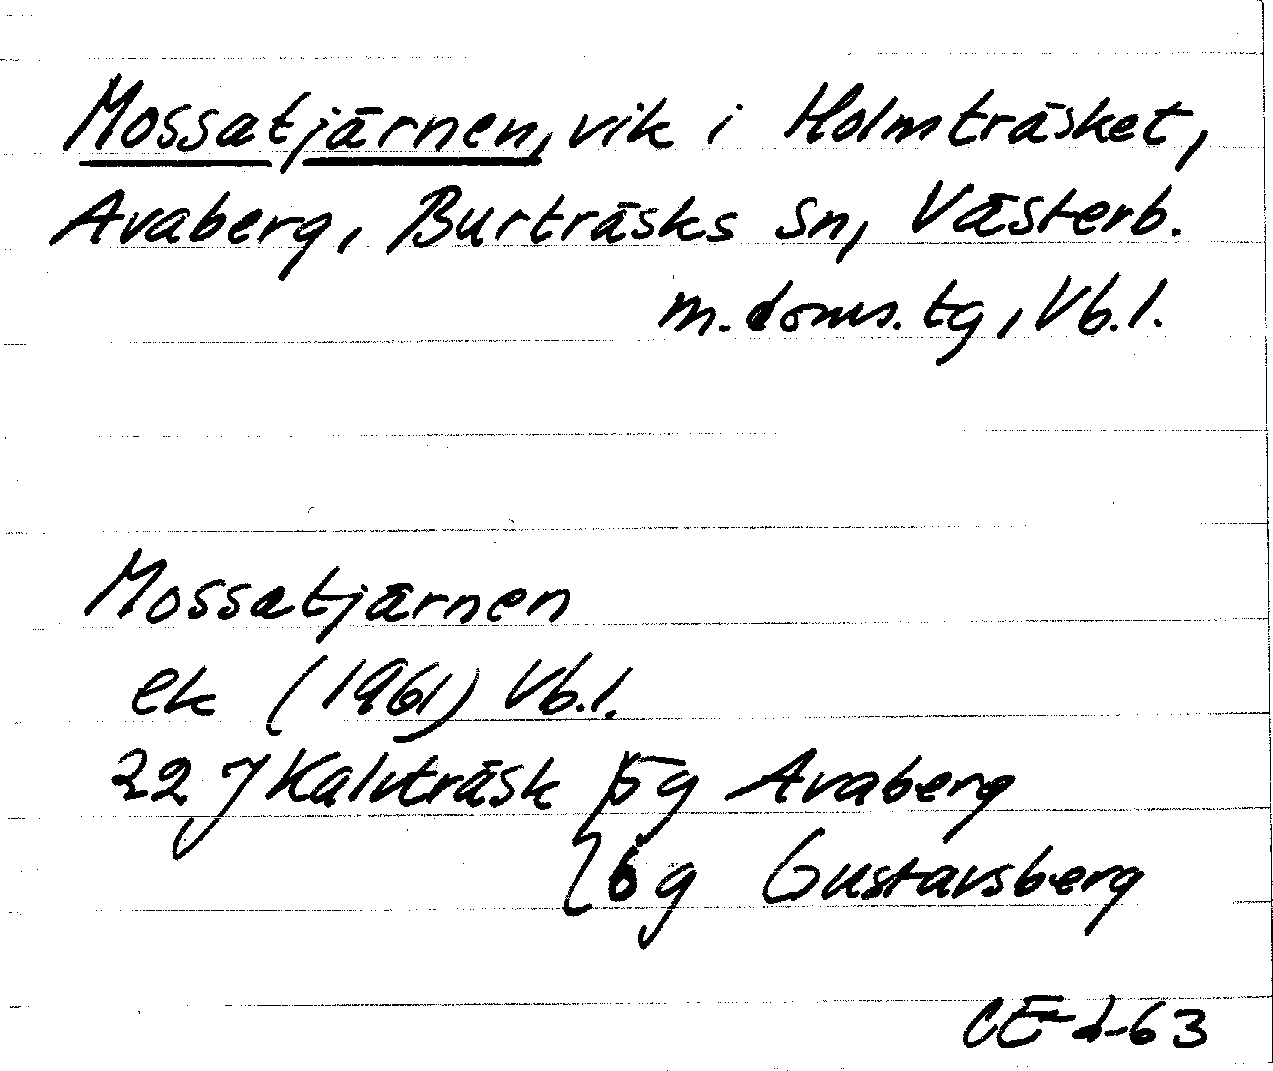 Mossatjärnen, vik i Holmträsket,
Avaberg, Burträsks sn, Västerb.
m. doms. tg, Vb.l.
Mossatjärnen
ek (1961) Vb.l.
22 J Kalvträsk 5g Avaberg
6g Gustavsberg
CE-d-63